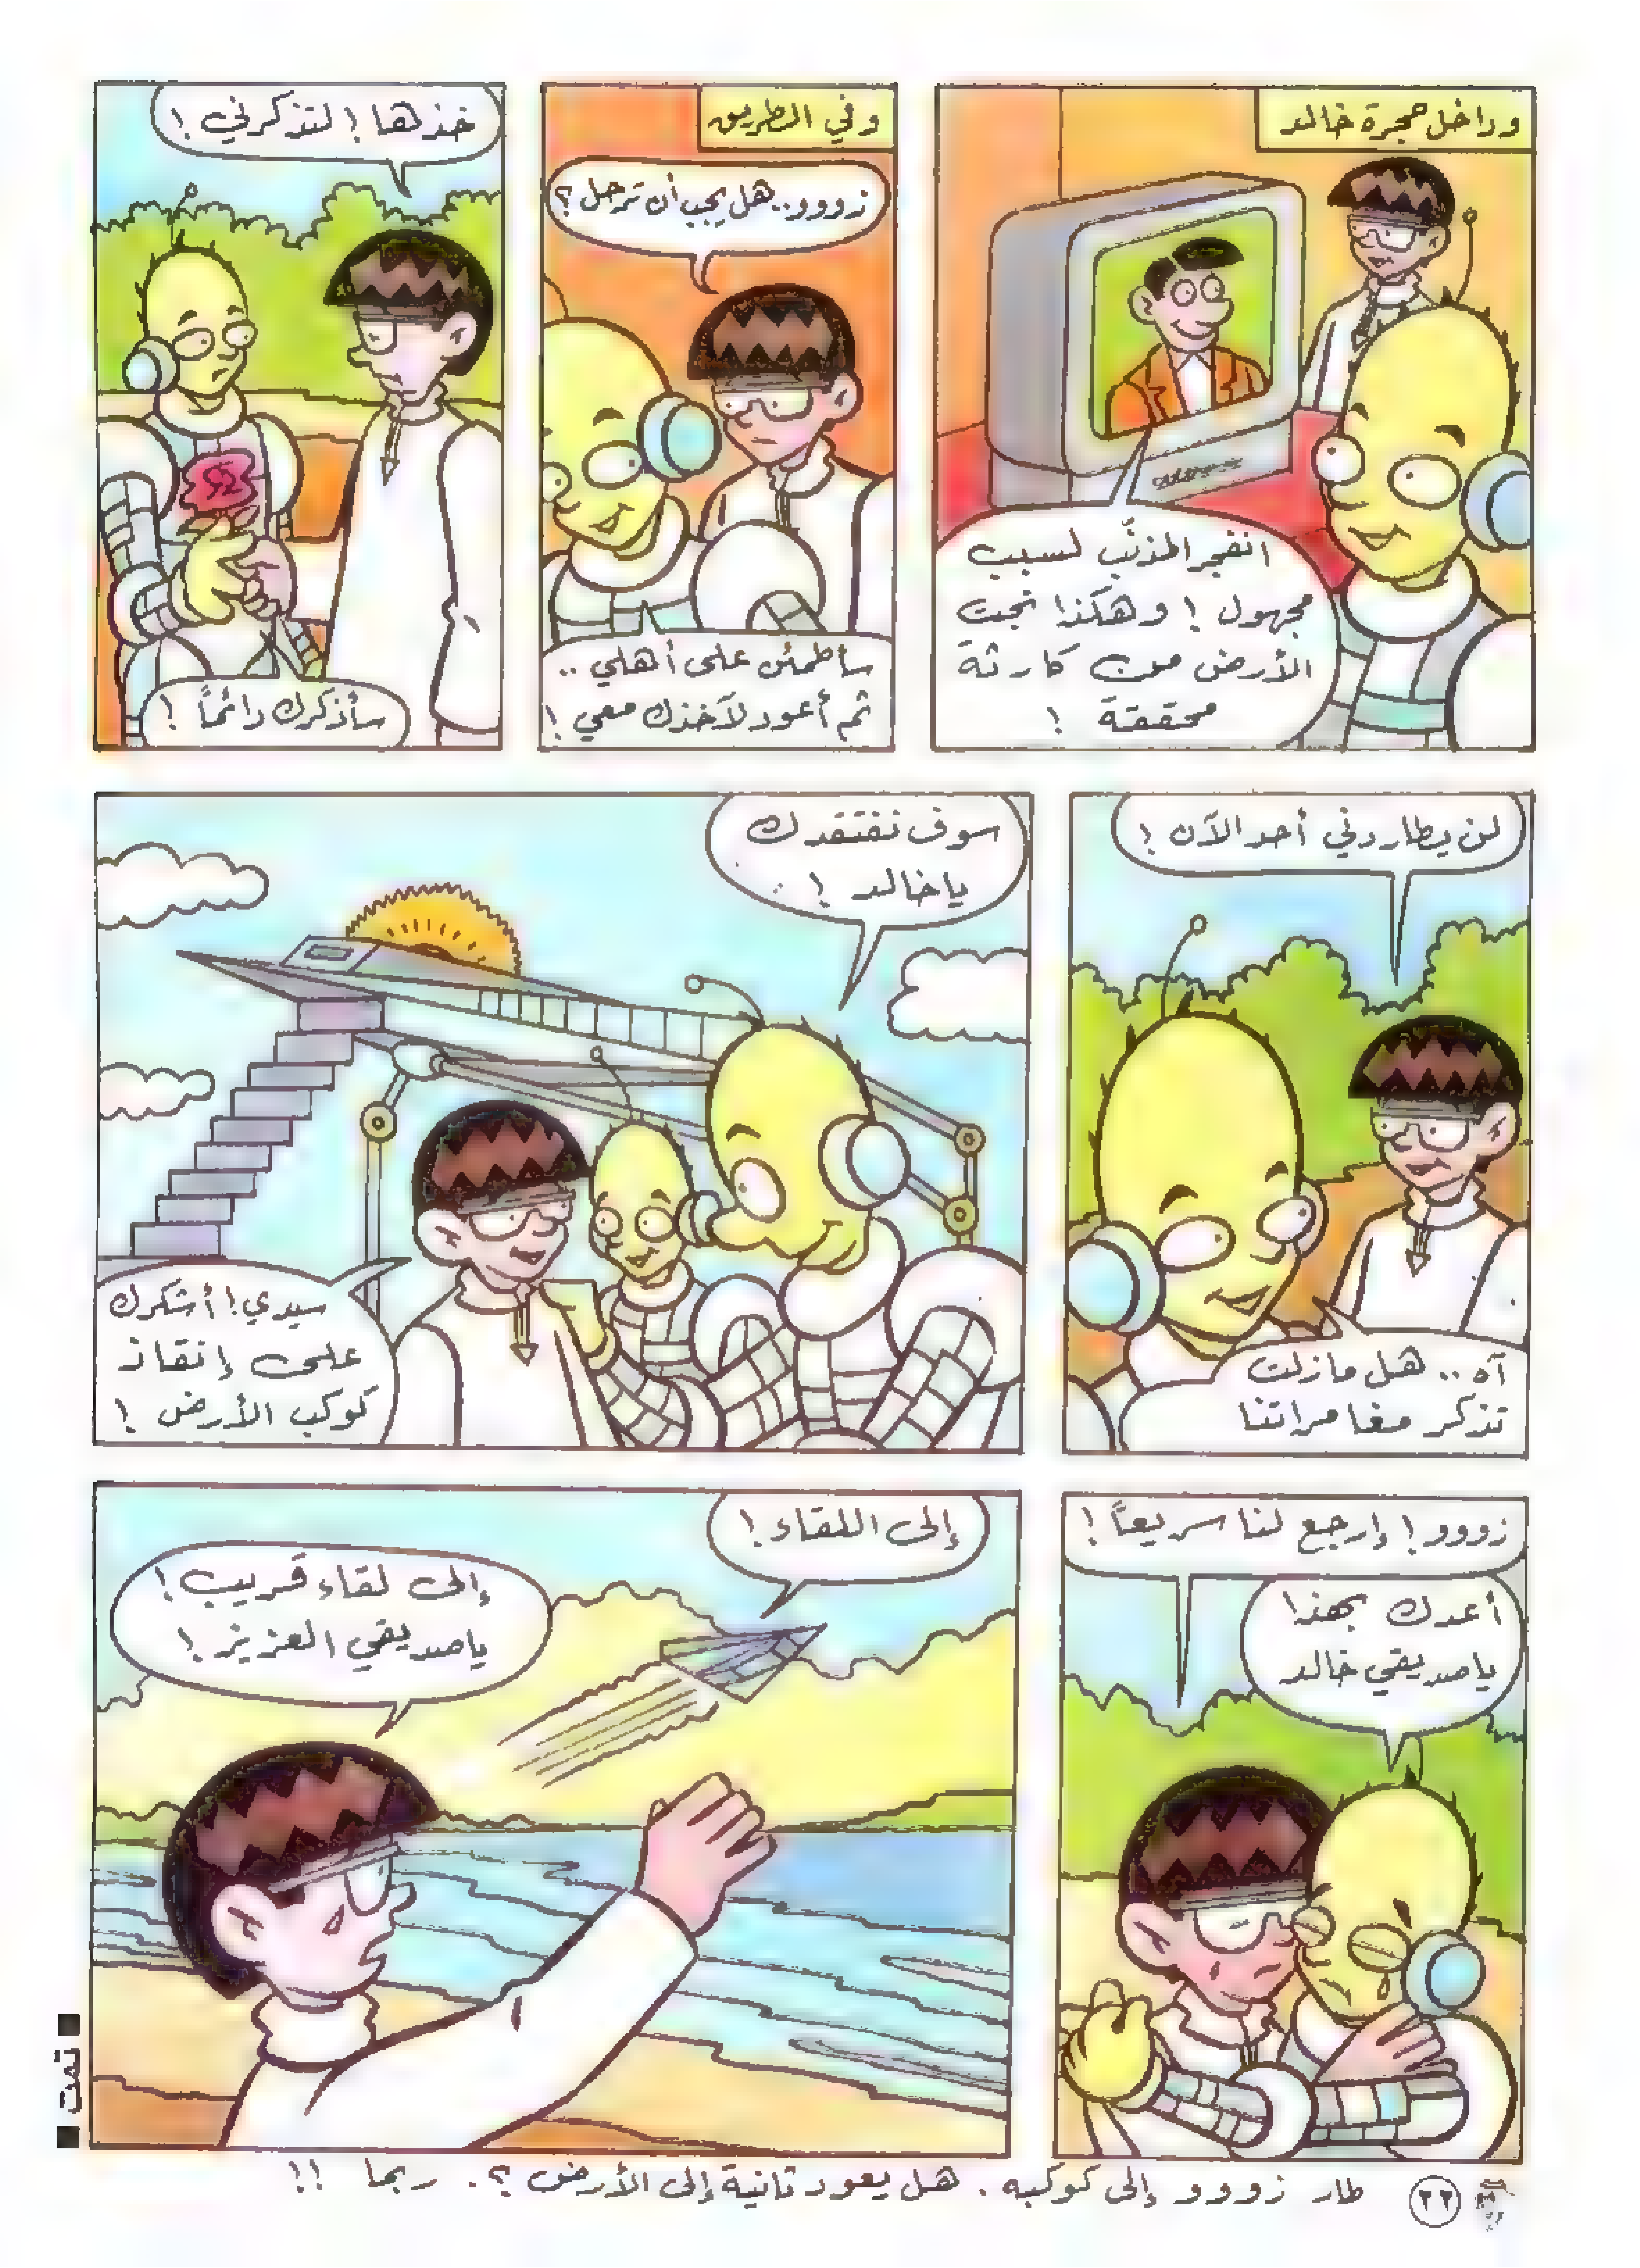 وداخل حجرة خالد
انفجر المذنّب لسبب
مجهول ! وهكذا نجت
الأرض من كارثة
محققة !
وفي الطريق
زووو.. هل يجب أن ترحل ؟
سأطمئن على أهلي ..
ثم أعود لآخذك معي !
خذها ! لتذكرني !
سأذكرك دائماً !
لن يطاردني أحد الآن !
آه .. هل مازلت
تذكر مغامراتنا
سوف نفتقدك
ياخالد !
سيدي ! أشكرك
على إنقاذ
كوكب الأرض !
زووو ! إرجع لنا سريعاً !
أعدك بهذا
ياصديقي خالد
إلى اللقاء !
إلى لقاء قريب !
ياصديقي العزيز !
■ تمت ■
٢٢
طار زووو إلى كوكبه . هل يعود ثانية إلى الأرض ؟. ربما !!